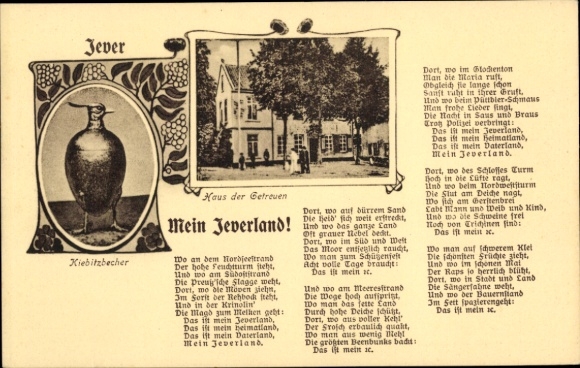 Jever
Haus der Getreuen
Kiebitzbecher
Mein Jeverland!
Wo an dem Nordseestrand
Der hohe Leuchtturm steht,
Und wo am Südoststrand
Die Preuß'sche Flagge weht,
Dort, wo die Möven ziehn,
Im Forst der Rehbock steht,
Und in der Krinolin'
Die Magd zum Melken geht:
Das ist mein Jeverland,
Das ist mein Heimatland,
Das ist mein Vaterland,
Mein Jeverland.
Dort, wo auf dürrem Sand
Die Heid' sich weit erstreckt,
Und wo das ganze Land
Oft grauer Nebel deckt.
Dort, wo im Süd und West
Das Moor entsetzlich raucht,
Wo man zum Schützenfest
Acht volle Tage braucht:
Das ist mein ꝛc.
Und wo am Meeresstrand
Die Woge hoch aufspritzt,
Wo man das fette Land
Durch hohe Deiche schützt,
Dort, wo aus voller Kehl'
Der Frosch erbaulich quakt,
Wo man aus wenig Mehl
Die größten Beenbunks backt:
Das ist mein ꝛc.
Dort, wo im Glockenton
Man die Maria ruft,
Obgleich sie lange schon
Sanft ruht in ihrer Gruft,
Und wo beim Püttbier-Schmaus
Man frohe Lieder singt,
Die Nacht in Saus und Braus
Trotz Polizei verbringt:
Das ist mein Jeverland,
Das ist mein Heimatland,
Das ist mein Vaterland,
Mein Jeverland.
Dort, wo des Schlosses Turm
Hoch in die Lüfte ragt,
Und wo beim Nordweststurm
Die Flut am Deiche nagt,
Wo sich am Gerstenbrei
Labt Mann und Weib und Kind,
Und wo die Schweine frei
Noch von Trichinen sind:
Das ist mein ꝛc.
Wo man auf schwerem Klei
Die schönsten Früchte zieht,
Und wo im schönen Mai
Der Raps so herrlich blüht,
Dort, wo in Stadt und Land
Die Sängerfahne weht,
Und wo der Bauernstand
Im Fett spazierengeht:
Das ist mein ꝛc.